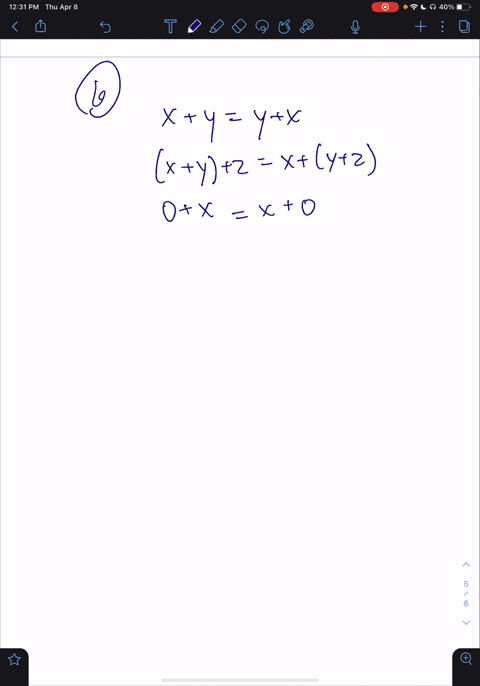 12:31 PM Thu Apr 8
40%
T
b
x + y = y + x
(x + y) + z = x + (y + z)
0 + x = x + 0
5
6